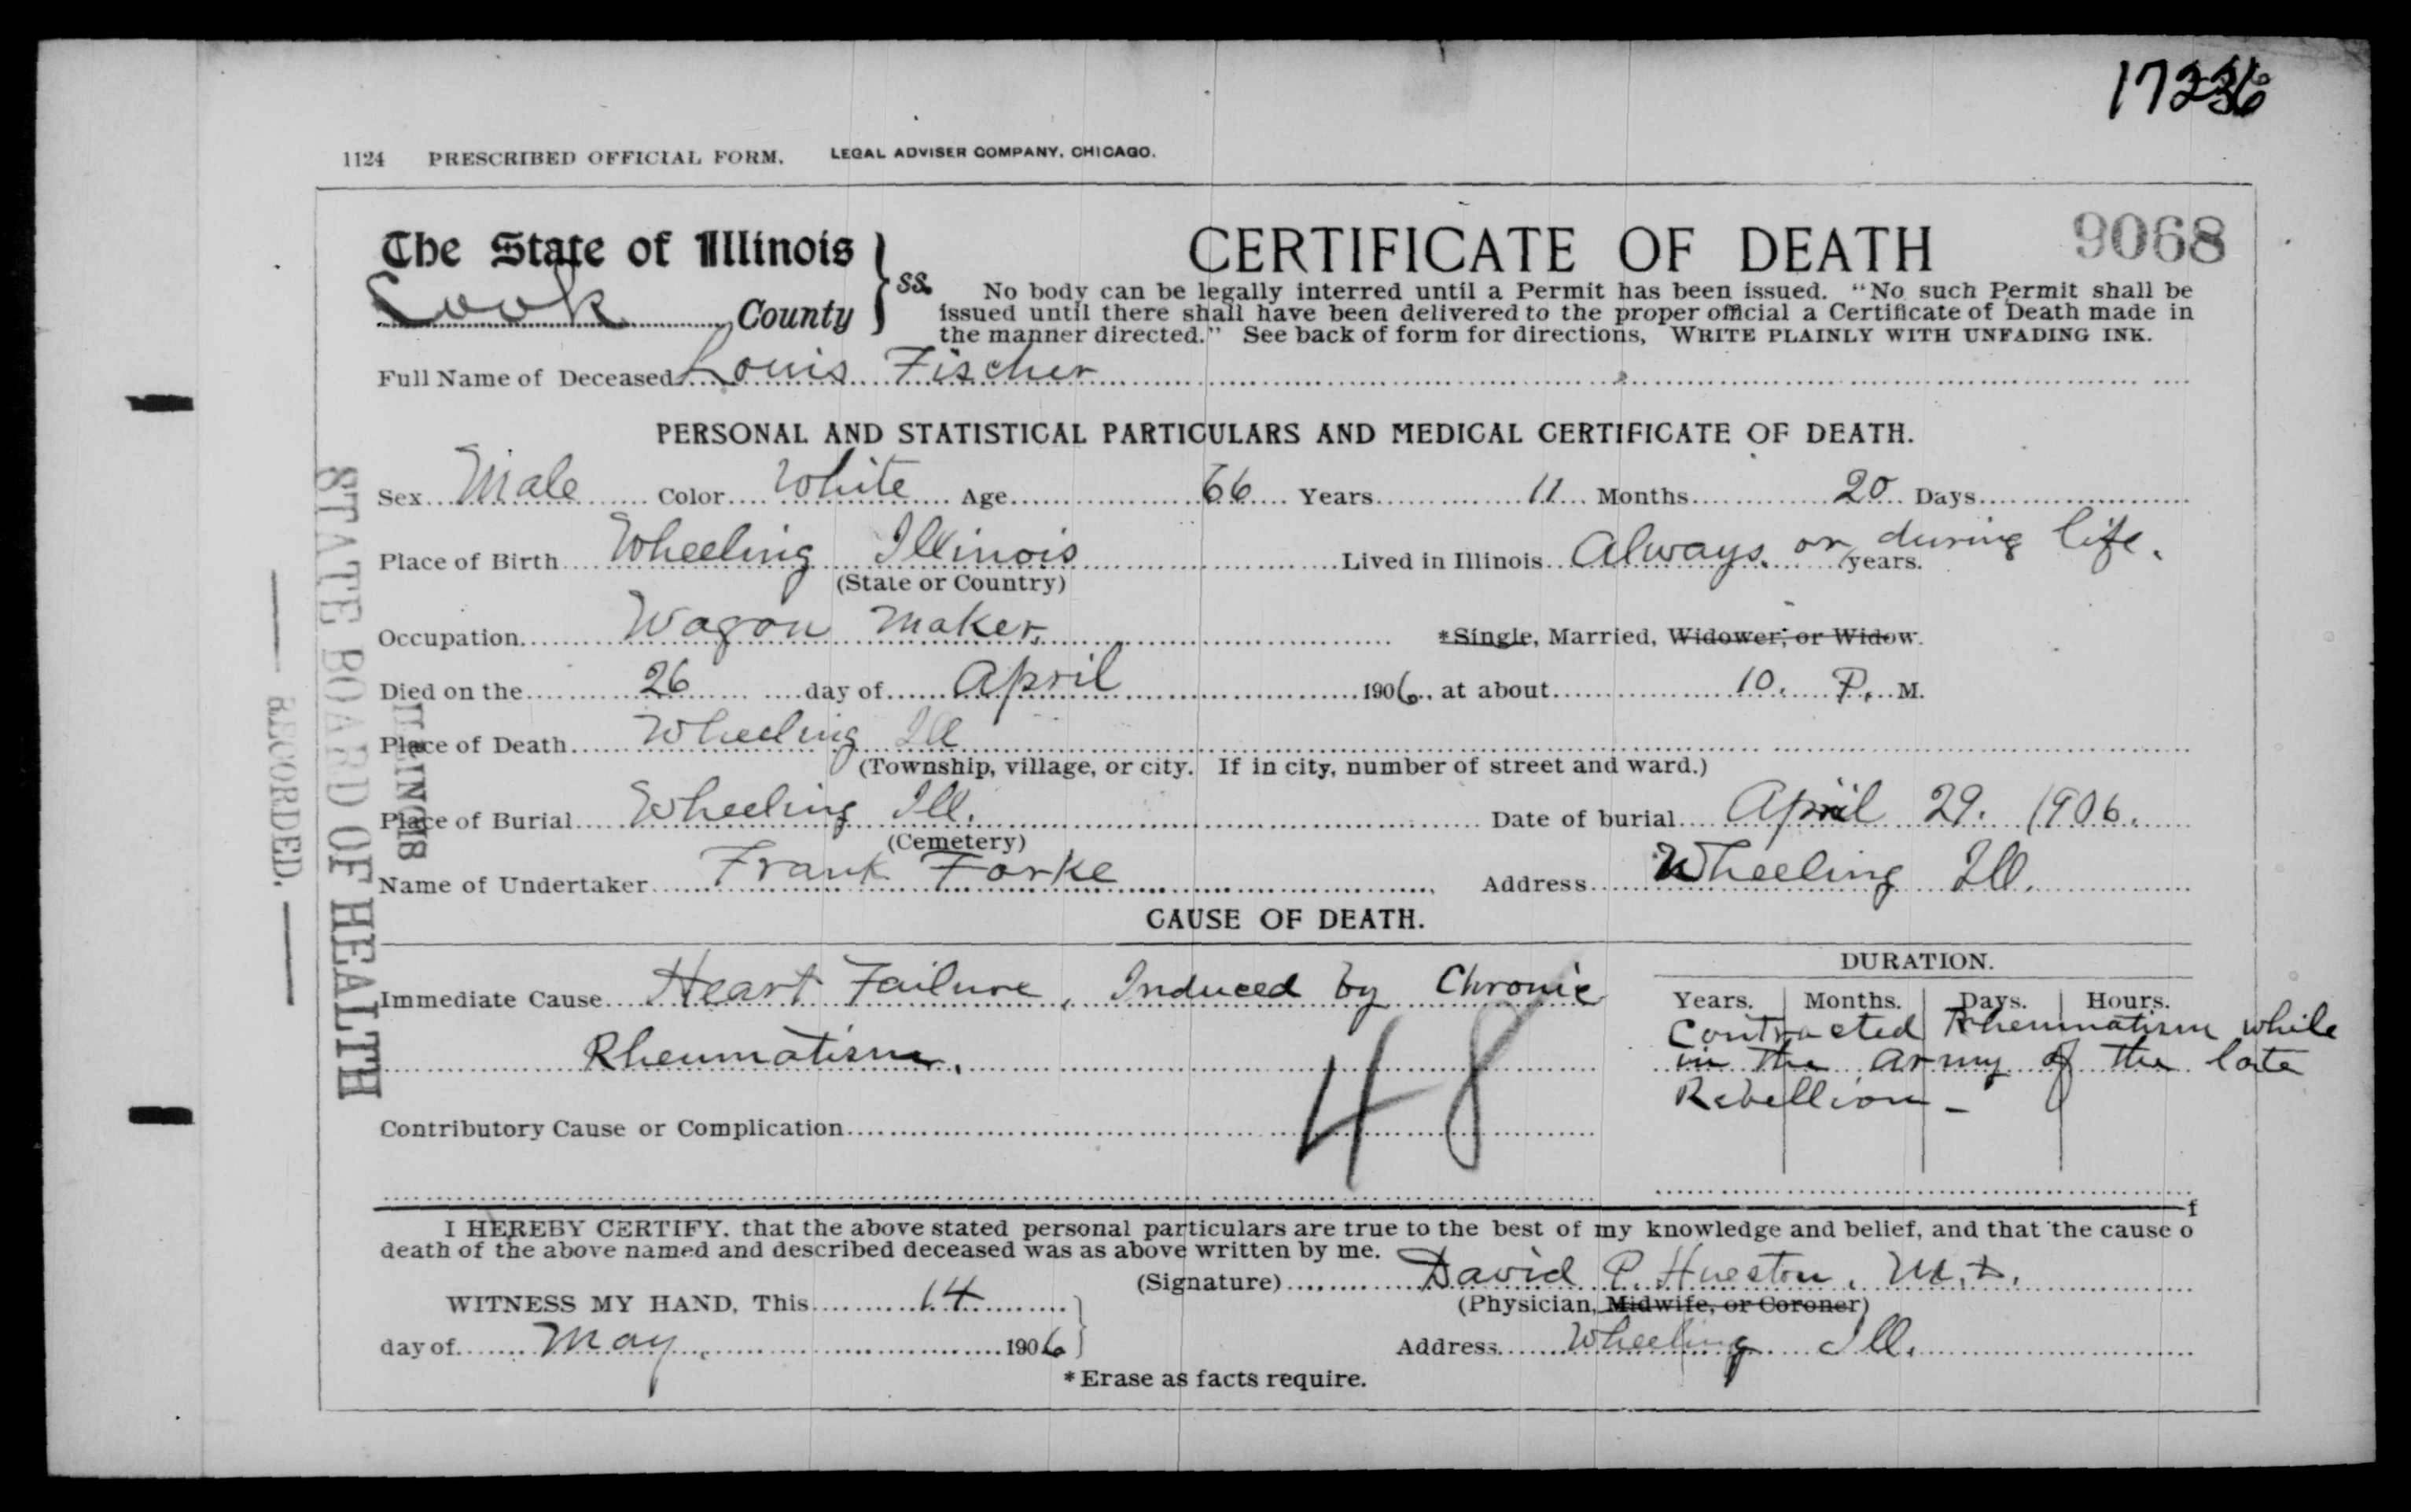 17236
1124 PRESCRIBED OFFICIAL FORM. LEGAL ADVISER COMPANY, CHICAGO.
The State of Illinois
Cook County
ss.
CERTIFICATE OF DEATH
9068
No body can be legally interred until a Permit has been issued. “No such Permit shall be
issued until there shall have been delivered to the proper official a Certificate of Death made in
the manner directed.” See back of form for directions, WRITE PLAINLY WITH UNFADING INK.
Full Name of Deceased Louis Fischer
PERSONAL AND STATISTICAL PARTICULARS AND MEDICAL CERTIFICATE OF DEATH.
Sex Male Color White Age 66 Years 11 Months 20 Days
Place of Birth Wheeling Illinois Lived in Illinois Always or during life. years.
(State or Country)
Occupation Wagon Maker. *Single, Married, Widower, or Widow.
Died on the 26 day of April 1906, at about 10. P. M.
Place of Death Wheeling Ill
(Township, village, or city. If in city, number of street and ward.)
Place of Burial Wheeling Ill. Date of burial April 29. 1906.
(Cemetery)
Name of Undertaker Frank Forke Address Wheeling Ill.
CAUSE OF DEATH.
DURATION.
Years. Months. Days. Hours.
Immediate Cause Heart Failure, Induced by Chronic
Rheumatism.
Contracted Rheumatism while
in the army of the late
Rebellion -
48
Contributory Cause or Complication
I HEREBY CERTIFY. that the above stated personal particulars are true to the best of my knowledge and belief, and that the cause of
death of the above named and described deceased was as above written by me.
(Signature) David P. Hueston, M.D.
(Physician, Midwife, or Coroner)
WITNESS MY HAND, This 14
day of May, 1906
Address Wheeling Ill.
*Erase as facts require.
ILLINOIS
STATE BOARD OF HEALTH
RECORDED.